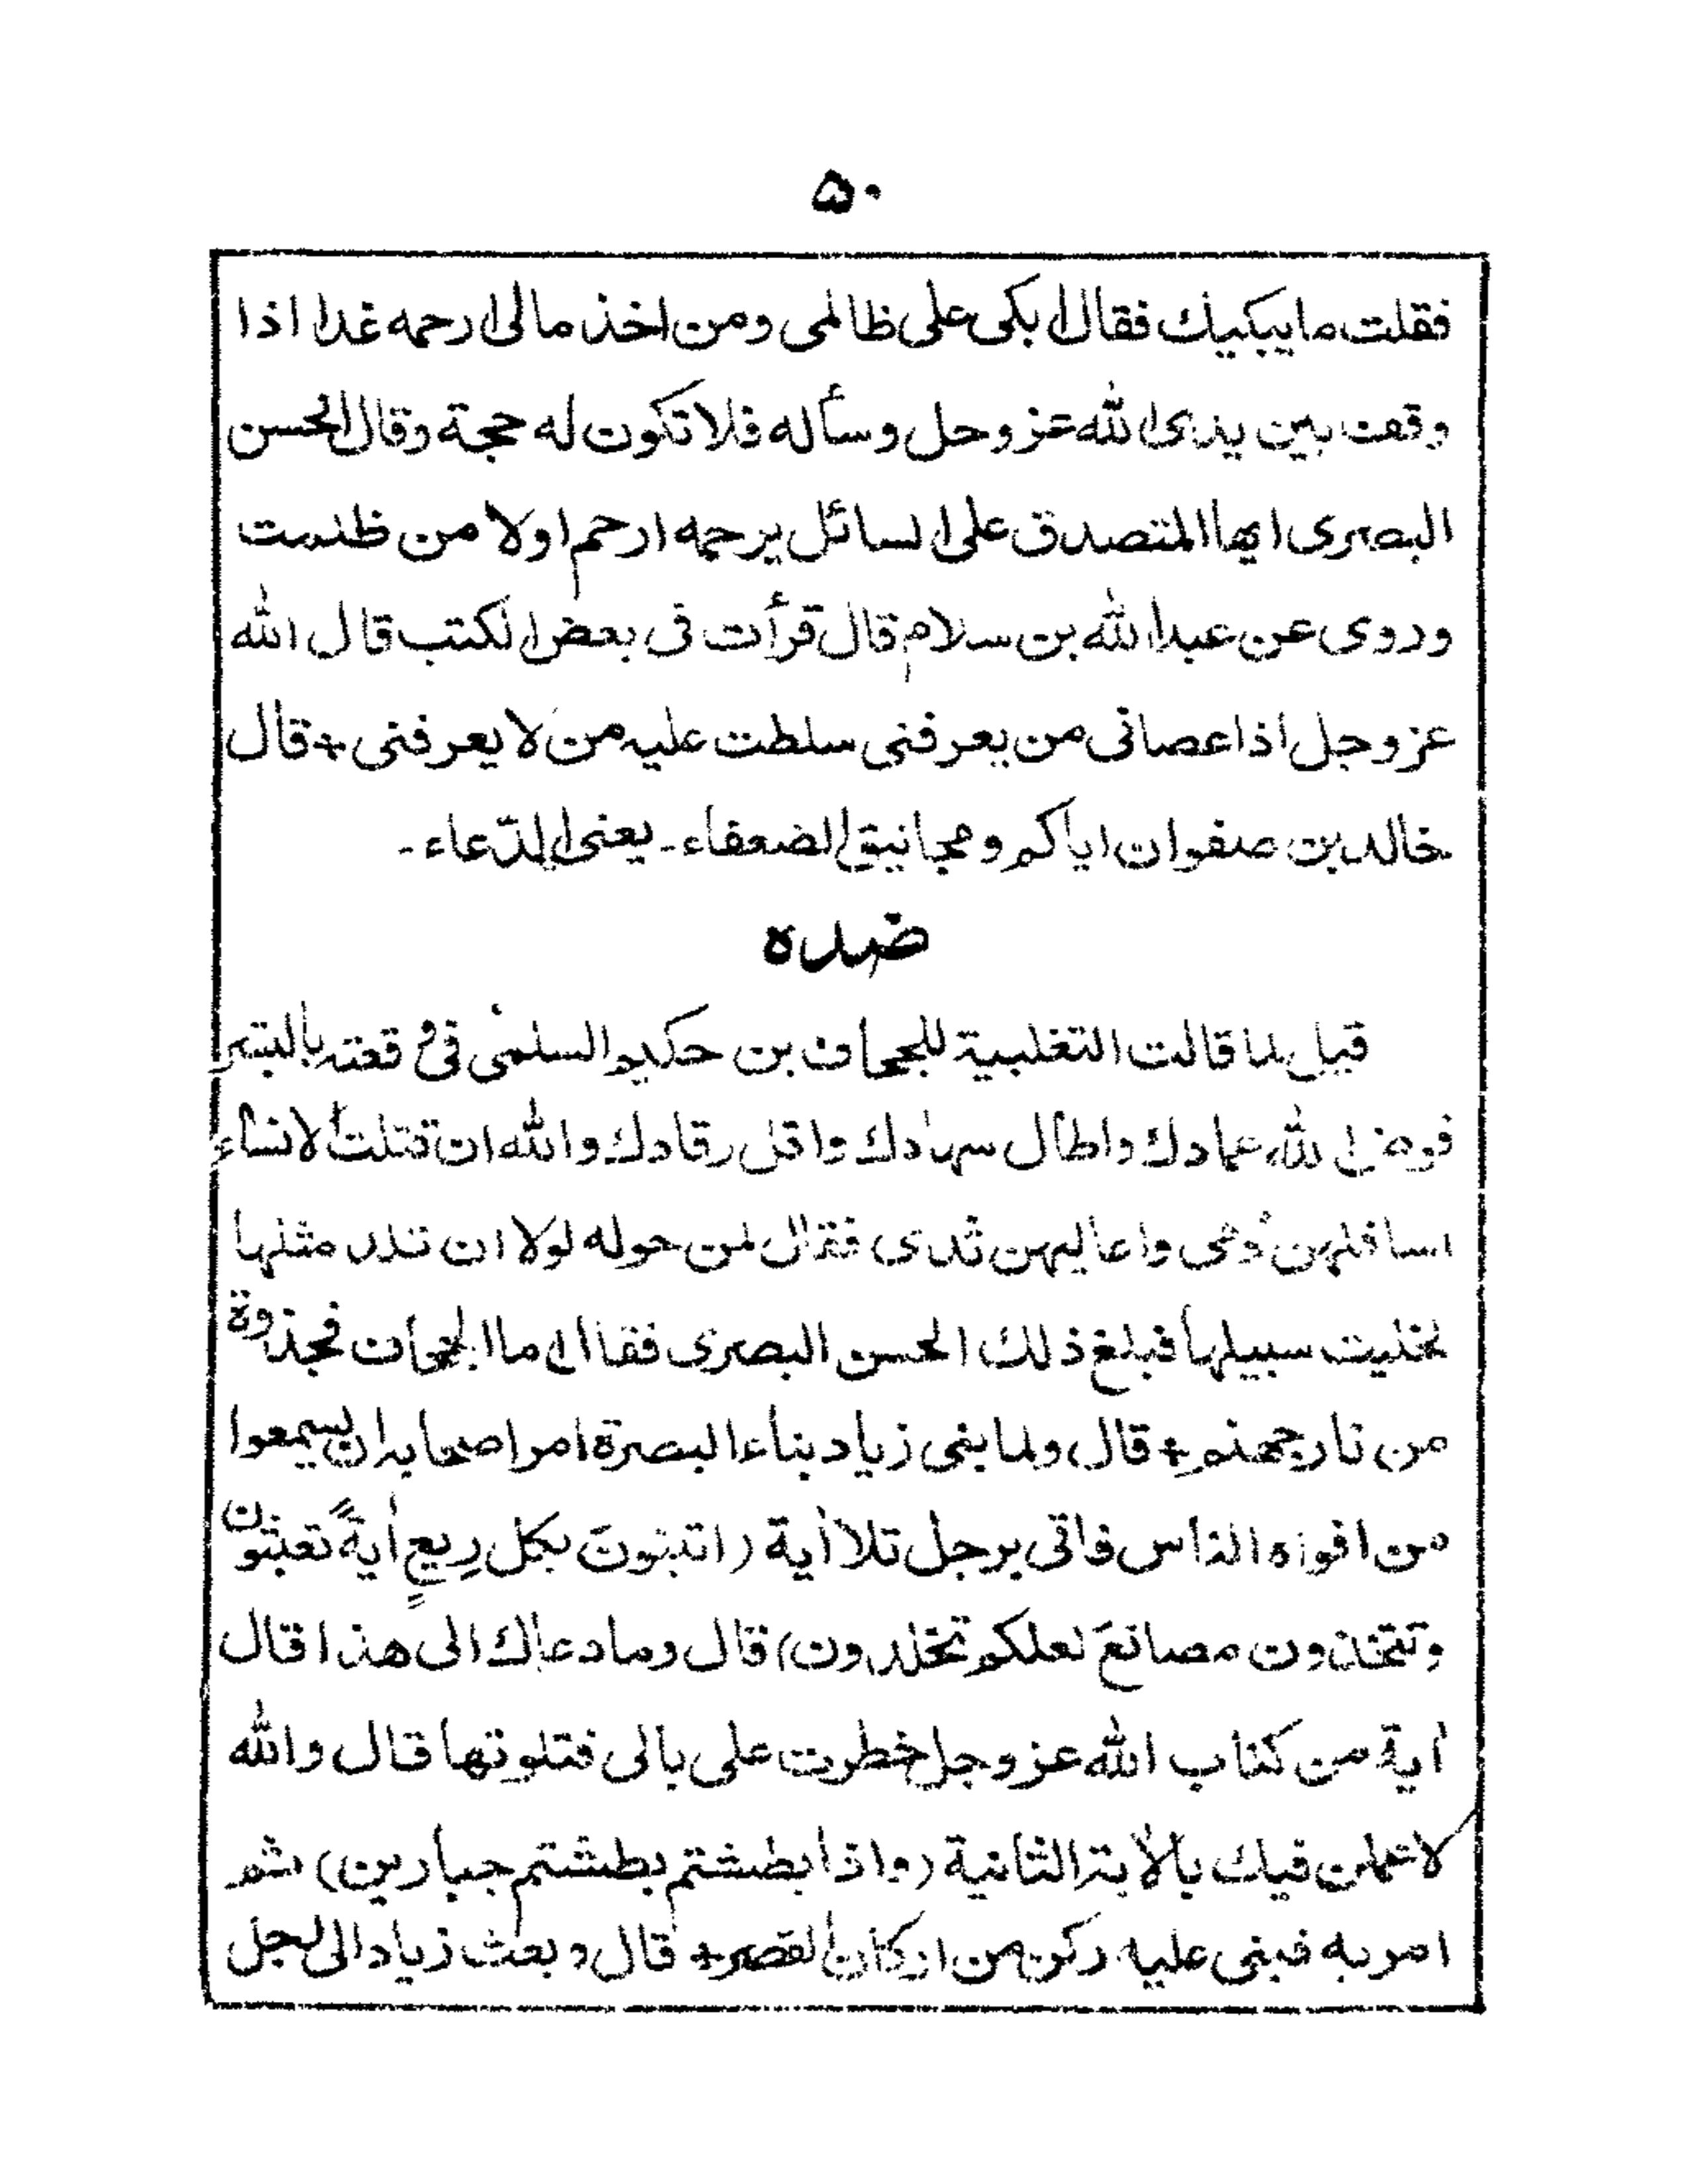 ۵۰
فقلت ما يبكيك فقال ابكى على ظالمى ومن اخذ مالى ارحمه غدا اذا
وقف بين يدى الله عز وجل وسأله فلا تكون له حجة وقال الحسن
البصرى ايها المتصدق على السائل يرحمه ارحم اولا من ظلمت
وروى عن عبد الله بن سلام قال قرأت فى بعض الكتب قال الله
عز وجل اذا عصانى من يعرفنى سلطت عليه من لا يعرفنى + قال
خالد بن صفوان اياكم ومجانيق الضعفاء - يعنى الدّعاء -
ضده
قيل لما قالت التغلبية للجحاف بن حكيم السلمى فى وقعته بالبشر
فوض الله عمادك واطال سهادك واقل رقادك والله ان قتلت الا نساء
اسافلهن دُمى واعاليهن ثدى فقال لمن حوله لولا ان تلد مثلها
لخليت سبيلها فبلغ ذلك الحسن البصرى فقال اما الجحاف فجذوة
من نار جهنم + قال ولما بنى زياد بناء البصرة امر اصحابه ان يسمعوا
من افواه الناس فاتى برجل تلا أية (اتبنونَ بكل رِيعٍ أيةً تعبثون
وتتخذون مصانعَ لعلكم تخلدون) قال وما دعاك الى هذا قال
أية من كتاب الله عز وجل خطرت على بالى فتلوتها قال والله
لاعملن فيك بالأية الثانية (واذا بطشتم بطشتم جبارين) ثم
امر به فبنى عليه ركن من اركان القصر + قال وبعث زياد الى رجل